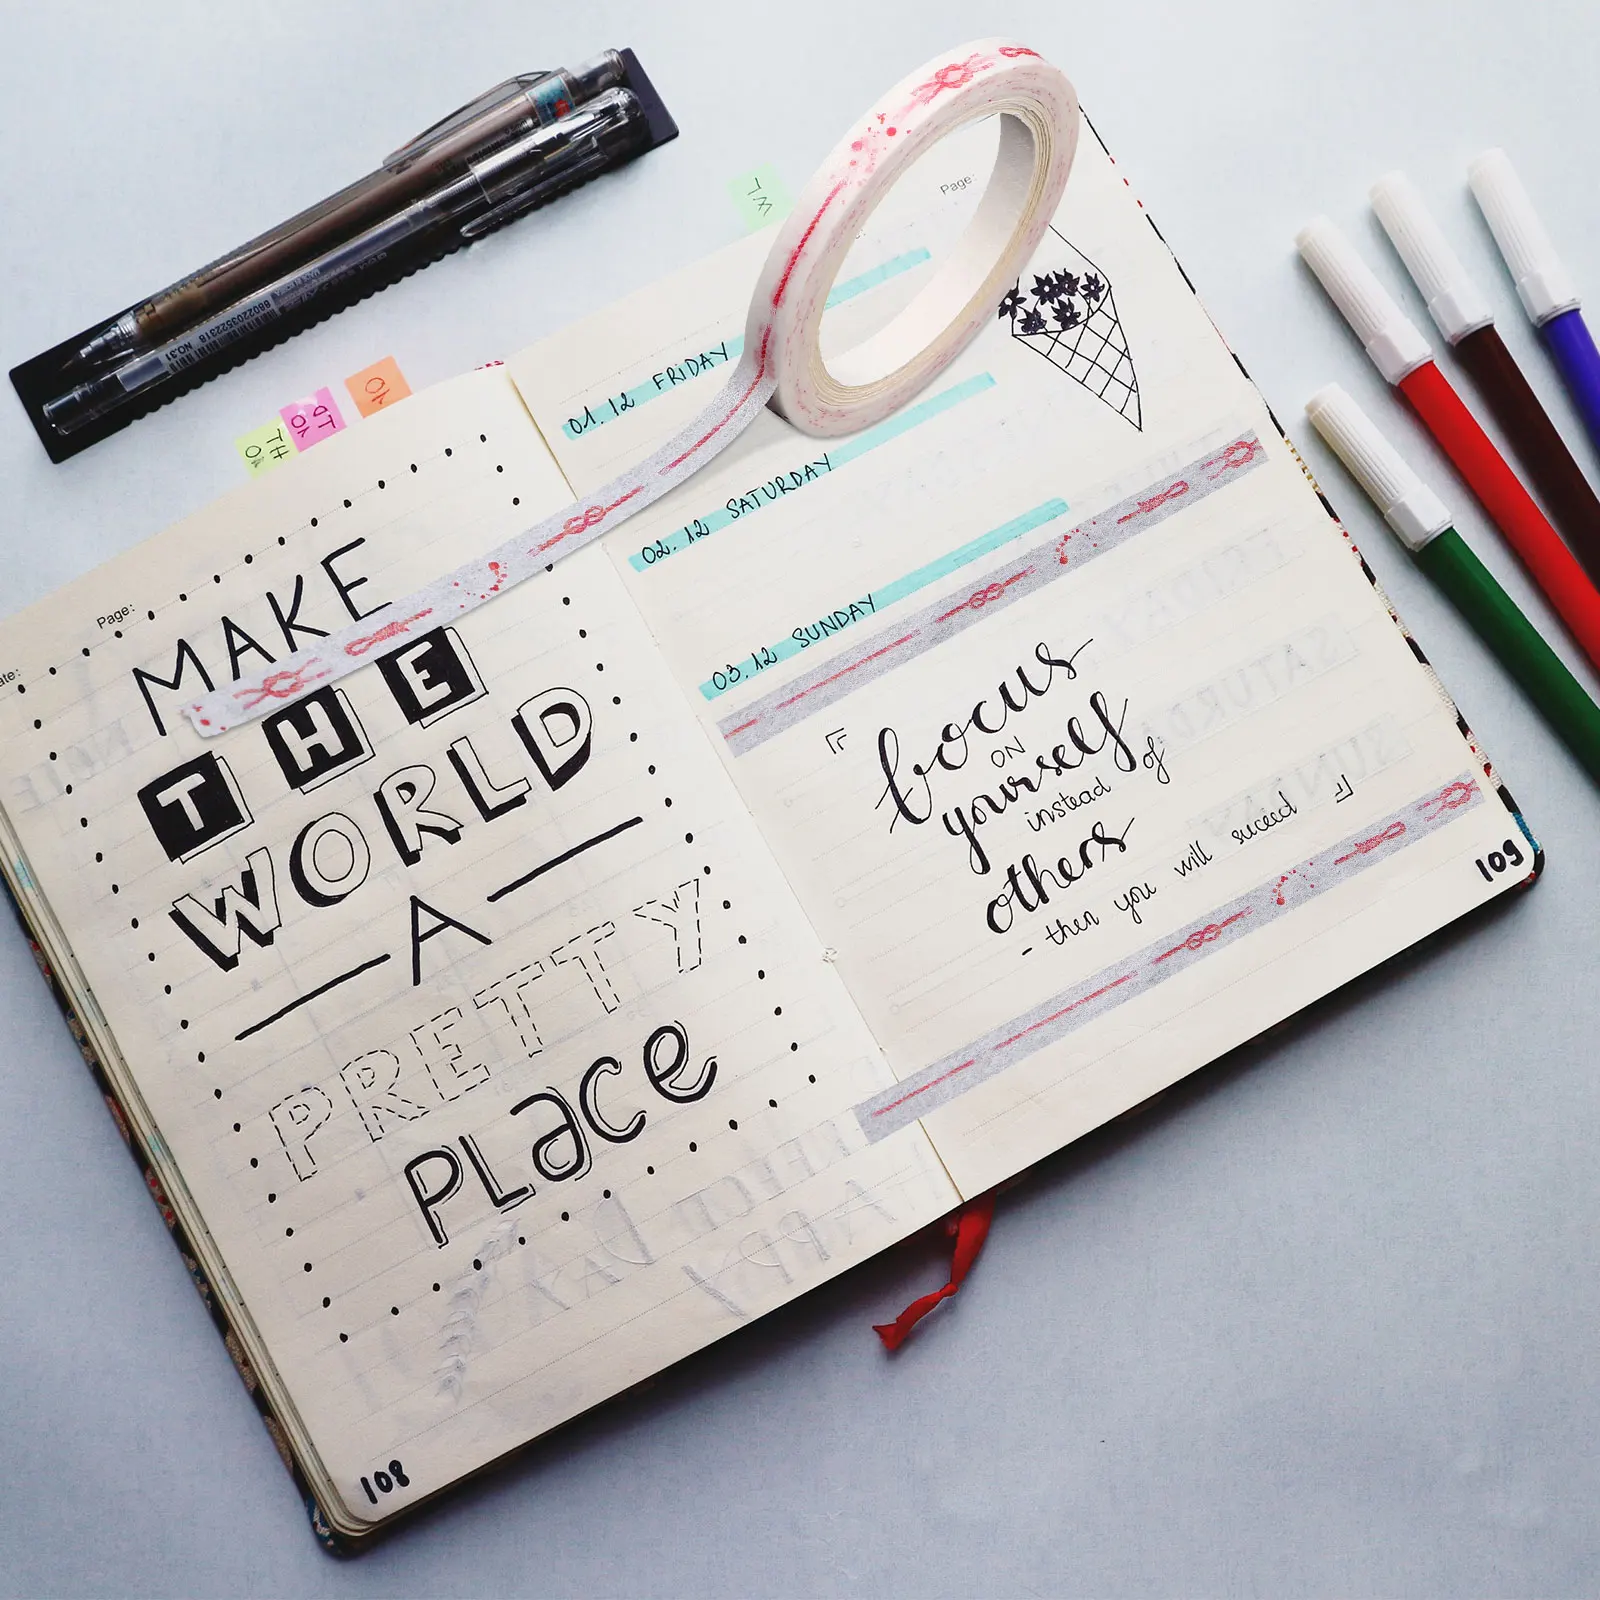 Page:
MAKE
THE
WORLD
A
PRETTY
PLace
108
Page:
01.12 FRIDAY
02.12 SATURDAY
03.12 SUNDAY
focus
ON
yourself
instead of
others
- then you will suceed
109
8802203522318 NO.31